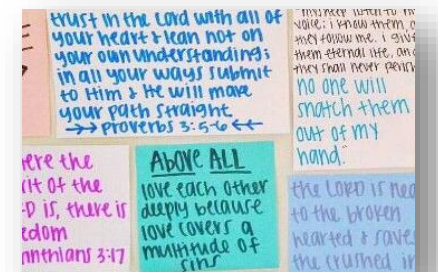 trust in the Lord with all of
your heart & lean not on
your own understanding;
in all your ways submit
to Him & He will make
your path straight
→→ Proverbs 3:5-6 ←←
voice; i know them,
they follow me. i give
them eternal life, an
they shall never perish
no one will
snatch them
out of my
hand."
ere the
rit of the
D is, there is
edom
inthians 3:17
ABOVE ALL
love each other
deeply because
love covers a
multitude of
sins
the LORD is nea
to the broken
hearted & saves
the crushed in